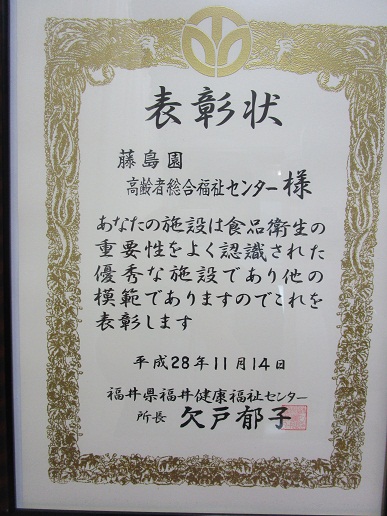 表彰状
藤島園
高齢者総合福祉センター 様
あなたの施設は食品衛生の
重要性をよく認識された
優秀な施設であり他の
模範でありますのでこれを
表彰します
平成28年11月14日
福井県福井健康福祉センター
所長 欠戸郁子